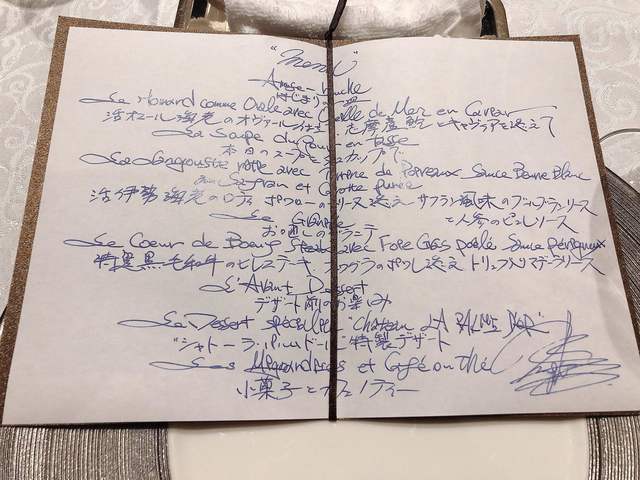 "Menu"
Amuse-bouche
はじまりの一皿
Le Homard comme Ovale avec Oreille de Mer en Caviar
活オマール海老のオヴァール仕立 志摩産鮑とキャヴィアを添えて
La Soupe du jour en Tasse
本日のスープをカップで
La Langouste rôtie avec Terrine de Poireaux Sauce Beurre Blanc
au Safran et Carotte purée
活伊勢海老のロティ ポワローのテリーヌ添え サフラン風味のブールブランソース
と人参のピュレソース
Le Granité
お口直しのグラニテ
Le Coeur de Boeuf Steak avec Foie Gras poêlé Sauce périgueux
特選黒毛和牛のヒレステーキ フォワグラのポワレ添え トリュフ入りマデラソース
L'Avant Dessert
デザート前のお楽しみ
Le Dessert spéciale "Château LA PALME D'OR"
"シャトーラ・パルム・ドール"特製デザート
Les Mignardises et Café ou thé
小菓子とカフェ・ティー